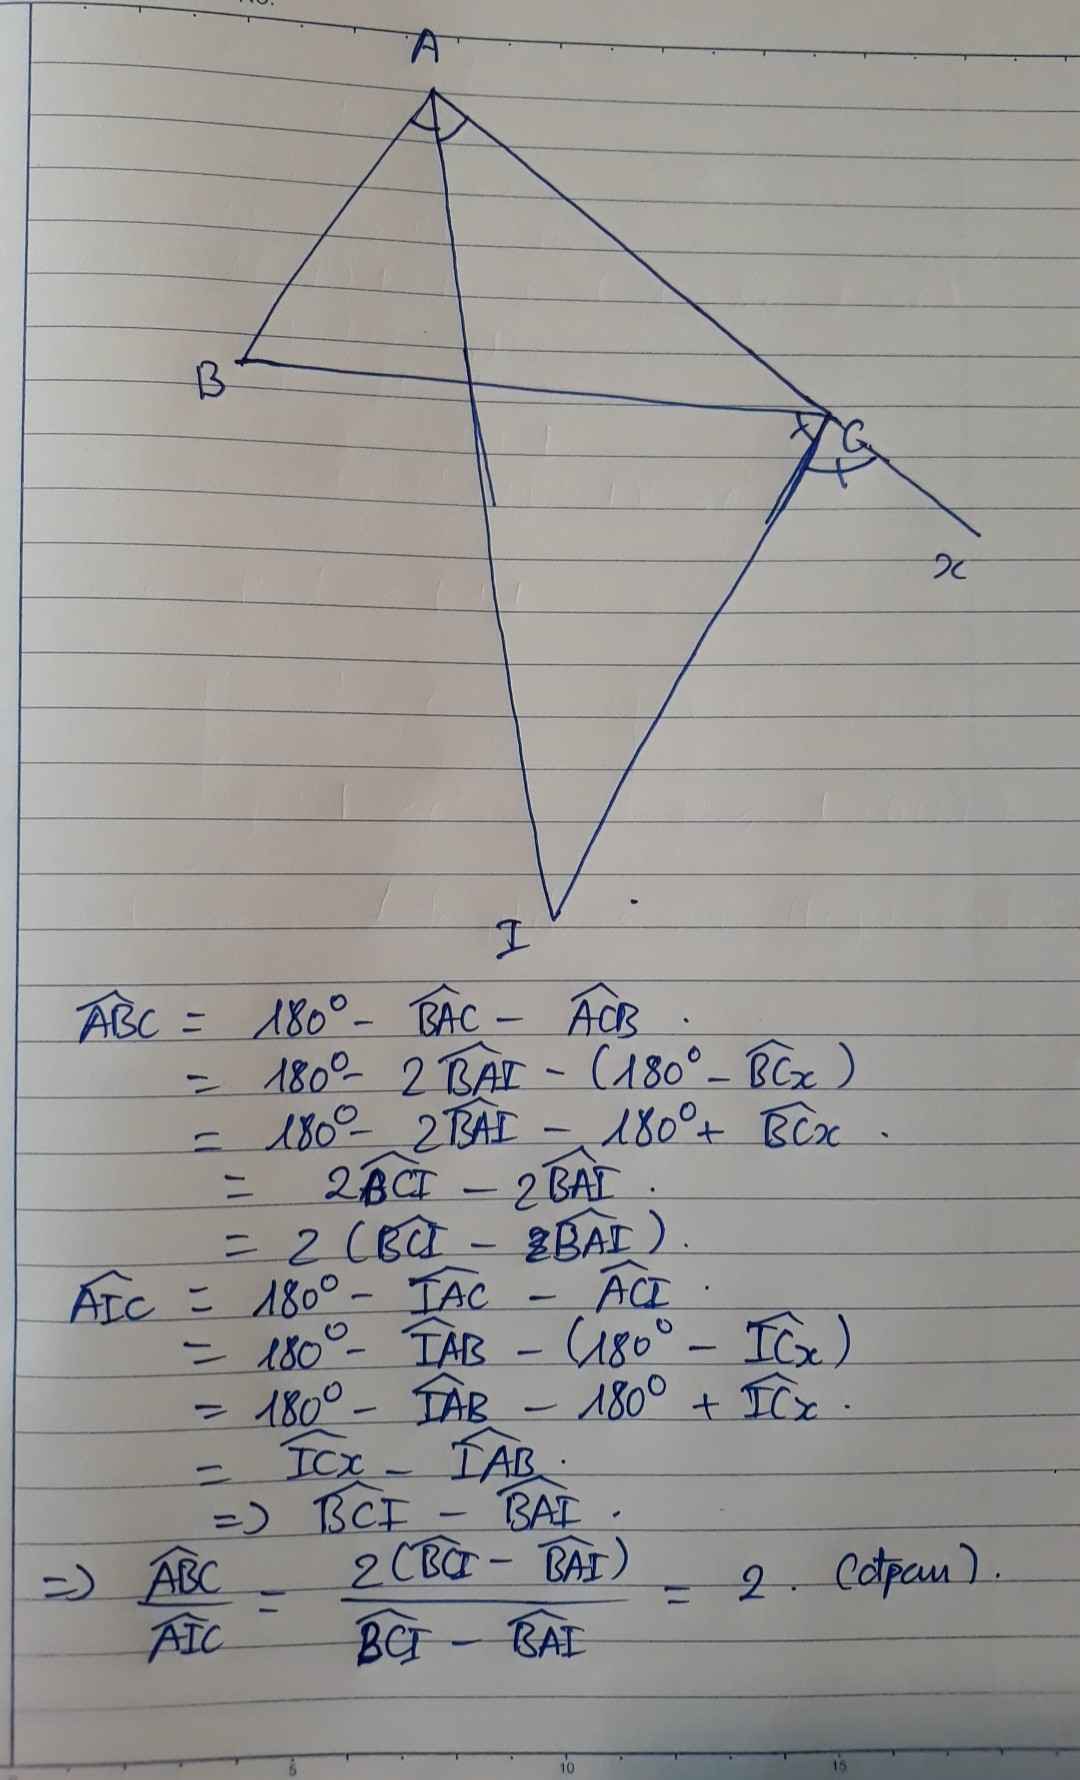 No.
A
B
C
x
I
ABC = 180° - BAC - ACB .
= 180° - 2BAI - (180° - BCx)
= 180° - 2BAI - 180° + BCx .
= 2BCI - 2BAI .
= 2 (BCI - BAI).
AIC = 180° - IAC - ACI .
= 180° - IAB - (180° - ICx)
= 180° - IAB - 180° + ICx .
= ICx - IAB .
=> BCI - BAI .
=> ABC / AIC = 2(BCI - BAI) / BCI - BAI = 2 . (đpcm).
5 10 15